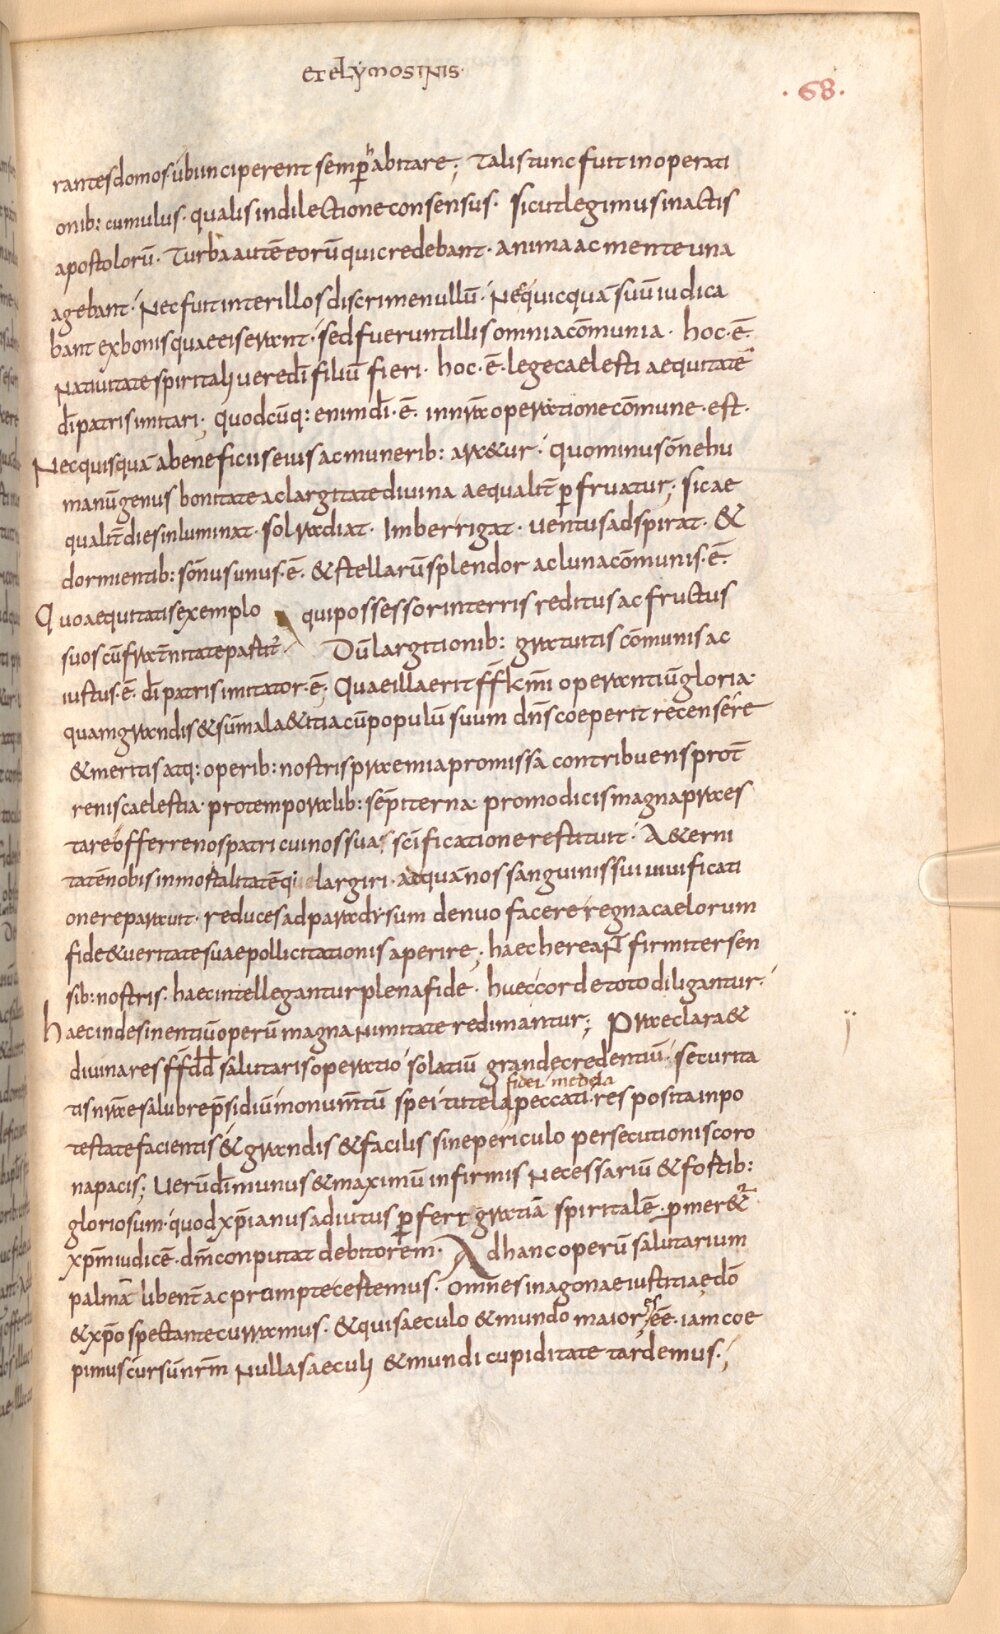 et elymosinis·
·68·
rantes domos· ubi inciperent semp̱ habitare; Talis tunc fuit in operati
onib: cumulus· qualis in dilectione consensus· sicut legimus in actis
apostolorū· Turba autē eorū qui credebant· anima ac mente una
agebant· Nec fuit inter illos discrimen ullū· Neq quicquā suū iudica
bant ex bonis quae eis erant· sed fuerunt illis omnia cōmunia· hoc·ē·
Natiuitate spiritali uere dī filiū fieri· hoc·ē· lege caelesti aequitatē
dī patris imitari; quodcūq: enim dī·ē· in nr̄a operatione cōmune·est·
Nec quisquā a beneficiis eius ac munerib: arcetur· quominus om̄ne hu
manū genus bonitate ac largitate diuina aequalit̄ p̱fruatur; sic ae
qualit̄ dies inluminat· sol radiat· Imber rigat· uentus adspirat· &
dormientib: som̄nus unus·ē· & stellarū splendor ac luna cōmunis·ē·
Quo aequitatis exemplo qui possessor in terris reditus ac fructus
suos cū frat̄nitate pastit̄· Dū largitionib: gratuitis cōmunis ac
iustus·ē· dī patris imitator·ē; Quae illa erit ff̄ k̄mi operantiū gloria·
quam grandis & sūma laetitia cū populū suum dn̄s coeperit recensere
& meritis atq: operib: nostris praemia promissa contribuens pro t̄
renis caelestia· pro temporalib: sēpiterna· pro modicis magna praes
tare offerre nos patri cui nos sua sc̄ificatione restituit· Aeterni
tatē nobis inmortalitatēq largiri· ad quā nos sanguinis sui uiuificati
one reparauit· reduces ad paradysum denuo facere regna caelorum
fide & ueritate suae pollicitationis aperire; haec hereant̄ firmiter sen
sib: nostris· haec intellegantur plena fide· haec corde toto diligantur·
haec indesinentiū operū magnanimitate redimantur; Praeclara &
diuina res ff̄ dd̄ salutaris operatio solatiū grande credentiū· securita
tis nr̄ae salubre p̄sidiū monumt̄ū spei tutela fidei medela peccati· res posita in po
testate facientis & grandis & facilis sine periculo persecutionis coro
na pacis; Uerū dī munus & maximū infirmis necessariū & fortib:
gloriosum· quod xp̄ianus adiutus p̱fert gratiā spiritalē· p̱meret̄
xp̄m iudicē· dm̄ conputat debitorem· Ad hanc operū salutarium
palmā libent̄ ac prompte certemus· omnes in agonae iustitiae dō
& xp̄o spectante curramus· & qui saeculo & mundo maiores eē· iam coe
pimus cursū nr̄m Nulla saeculi & mundi cupiditate tardemus·;